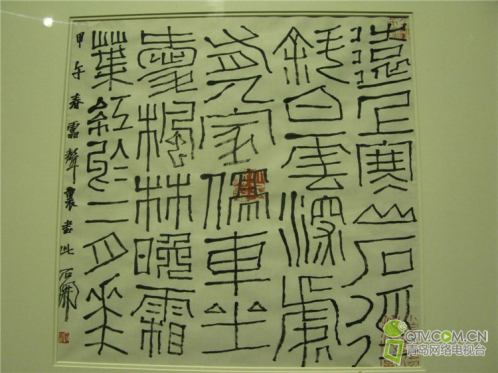 遠上寒山石徑
斜白雲深處
有人家停車坐
愛楓林晚霜
葉紅於二月花
甲午春雷聲裏書此石
QTV.COM.CN
青岛网络电视台